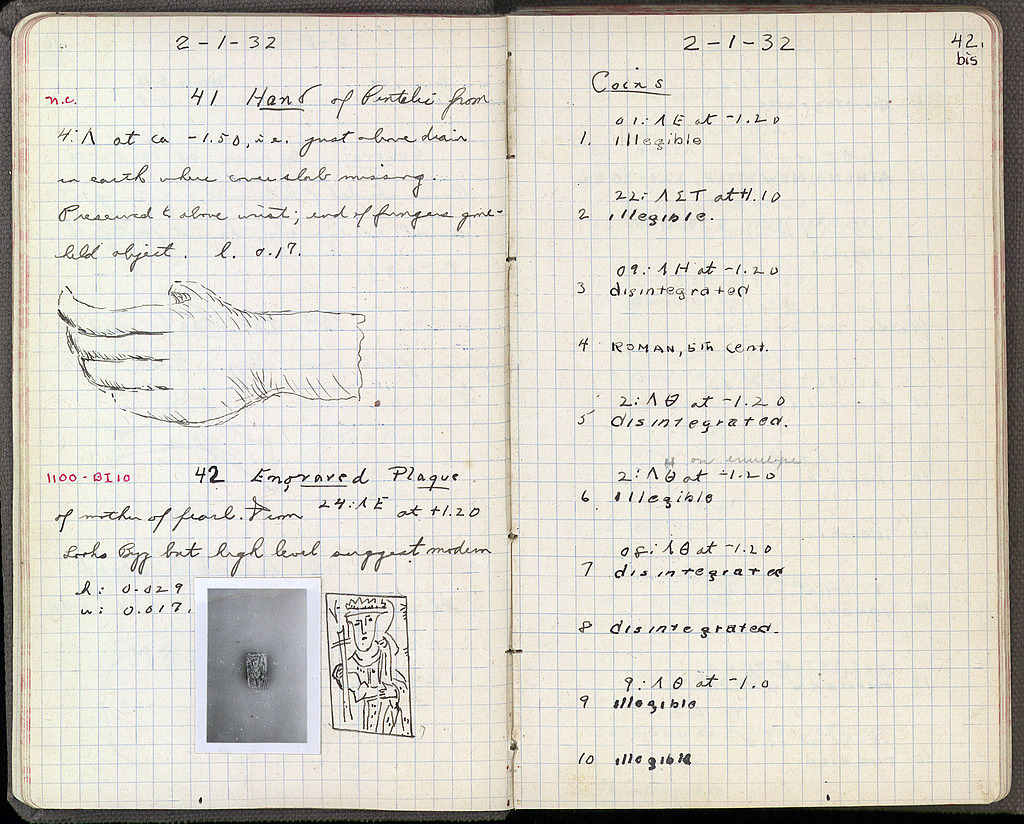 2-1-32
n.c. 41 Hand of Pentelic from
4:Λ at ca -1.50, i.e. just above drain
in earth where cover slab missing.
Preserved to above wrist; end of fingers gone -
held object. l. 0.17.
1100-BI10 42 Engraved Plaque
of mother of pearl. From 24:ΛE at +1.20
Looks Byz but high level suggest modern
h: 0.029
w: 0.017.
2-1-32
42.
bis
Coins
01:ΛE at -1.20
1. illegible
22:ΛΣΤ at +1.10
2 illegible.
09:ΛH at -1.20
3 disintegrated
4 ROMAN, 5th cent.
2:ΛΘ at -1.20
5 disintegrated.
on envelope
2:ΛΘ at -1.20
6 illegible
08:ΛΘ at -1.20
7 disintegrated
8 disintegrated.
9:ΛΘ at -1.0
9 illegible
10 illegible